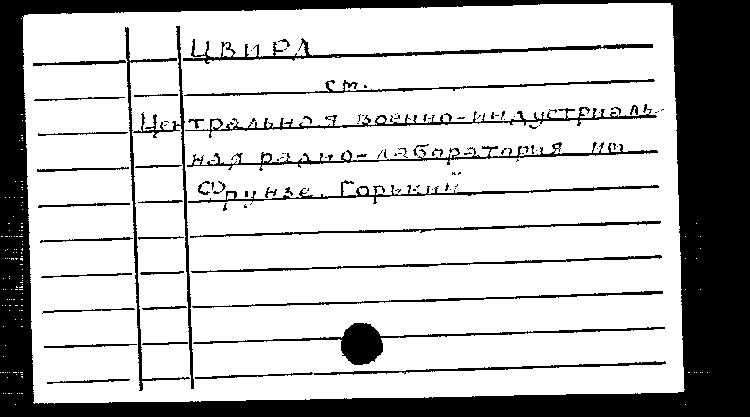 ЦВИРЛ
ст.
Центральная военно-индустриаль-
ная радио-лаборатория им
Фрунзе. Горький